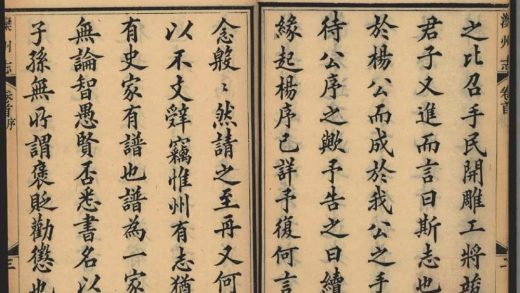 灤州志
卷首
之比召手民開雕工將竣
君子又進而言曰斯志也
於楊公而成於我公之手
待公序之歟予告之曰續
緣起楊序已詳予復何言
念殷殷然請之至再又何
以不文辭竊惟州有志猶
有史家有譜也譜為一家
無論智愚賢否悉書名以
子孫無所謂褒貶勸懲也
灤州志
卷首序
三